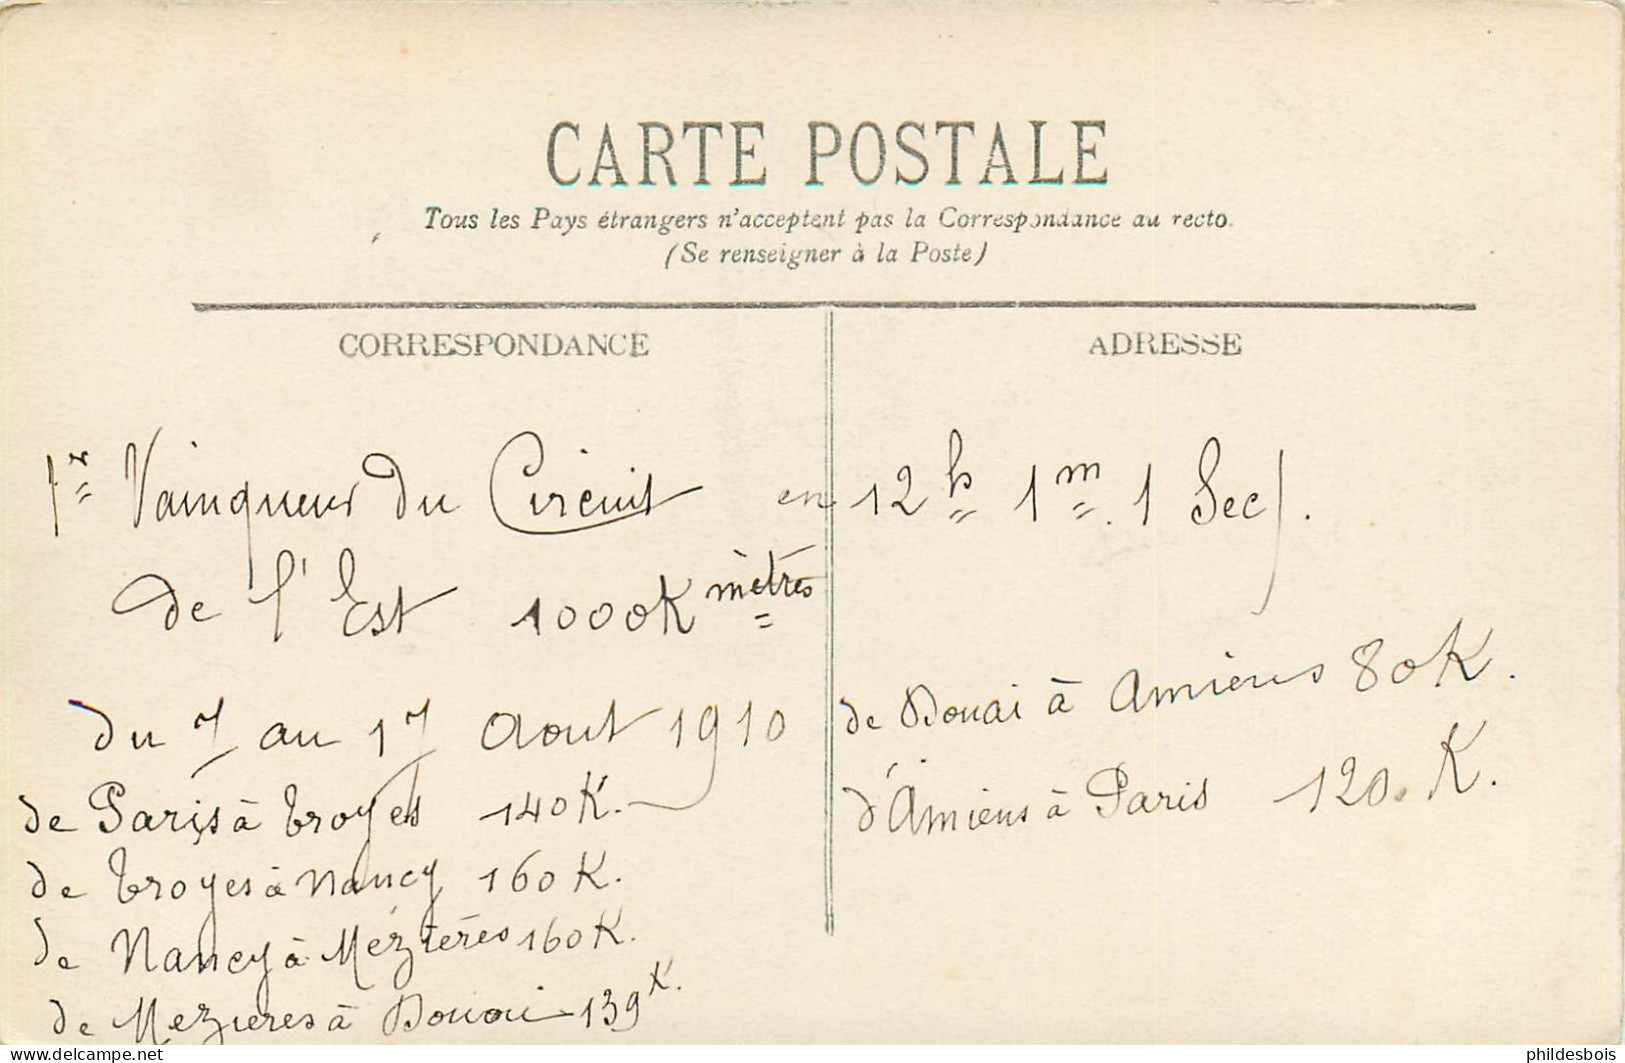 CARTE POSTALE
Tous les Pays étrangers n'acceptent pas la Correspondance au recto.
(Se renseigner à la Poste)
CORRESPONDANCE
ADRESSE
1er Vainqueur du Circuit en 12h 1m. 1 Sec.
de l'Est 1000 Kmètres
du 7 au 17 Aout 1910
de Paris à Troyes 140 K.
de Troyes à Nancy 160 K.
de Nancy à Mézières 160 K.
de Mézieres à Douai 139 K.
de Douai à Amiens 80 K.
d'Amiens à Paris 120. K.
delcampe.net
phildesbois